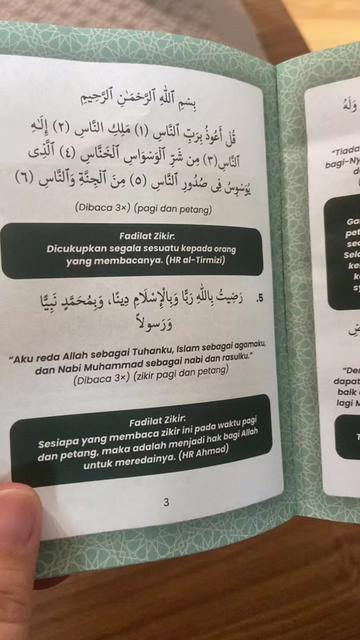 بِسْمِ ٱللَّهِ ٱلرَّحْمَـٰنِ ٱلرَّحِيمِ
قُلْ أَعُوذُ بِرَبِّ ٱلنَّاسِ (١) مَلِكِ ٱلنَّاسِ (٢) إِلَـٰهِ
ٱلنَّاسِ (٣) مِن شَرِّ ٱلْوَسْوَاسِ ٱلْخَنَّاسِ (٤) ٱلَّذِى
يُوَسْوِسُ فِى صُدُورِ ٱلنَّاسِ (٥) مِنَ ٱلْجِنَّةِ وَٱلنَّاسِ (٦)
(Dibaca 3×) (pagi dan petang)
Fadilat Zikir:
Dicukupkan segala sesuatu kepada orang
yang membacanya. (HR al-Tirmizi)
5. رَضِيْتُ بِاللَّهِ رَبًّا وَبِالْإِسْلَامِ دِينًا، وَبِمُحَمَّدٍ نَبِيًّا
وَرَسولاً
"Aku reda Allah sebagai Tuhanku, Islam sebagai agamaku,
dan Nabi Muhammad sebagai nabi dan rasulku."
(Dibaca 3×) (zikir pagi dan petang)
Fadilat Zikir:
Sesiapa yang membaca zikir ini pada waktu pagi
dan petang, maka adalah menjadi hak bagi Allah
untuk meredainya. (HR Ahmad)
3
وَلَهُ
"Tiada
bagi-Ny
"Der
dapat
baik
lagi M